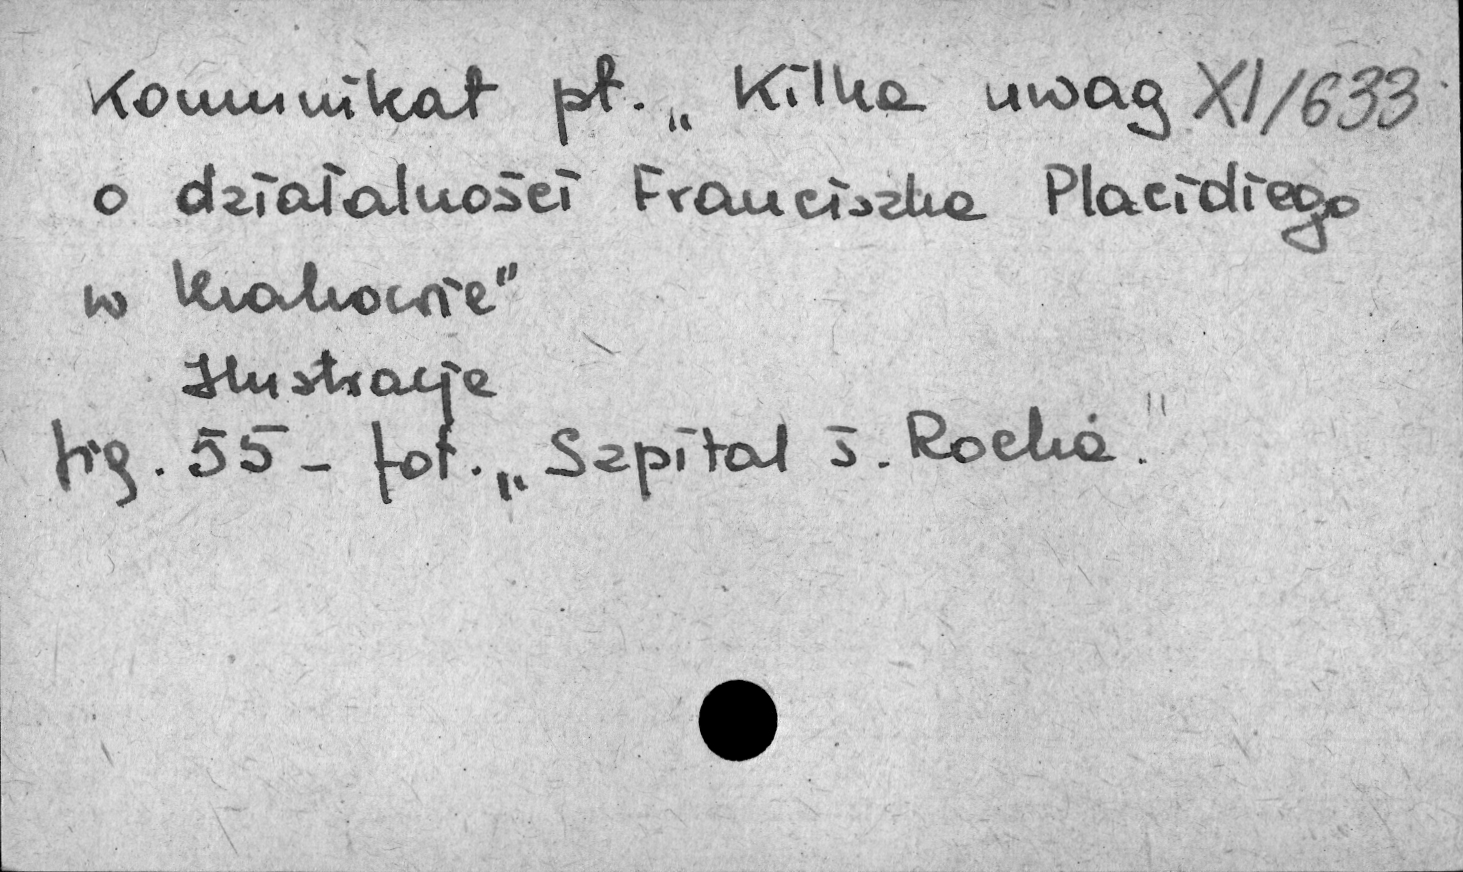 Komunikat pt. „Kilka uwag XI/633
o działalności Franciszka Placidiego
w Krakowie"
Ilustracje
fig. 55 - fot. „Szpital ś. Rocha."